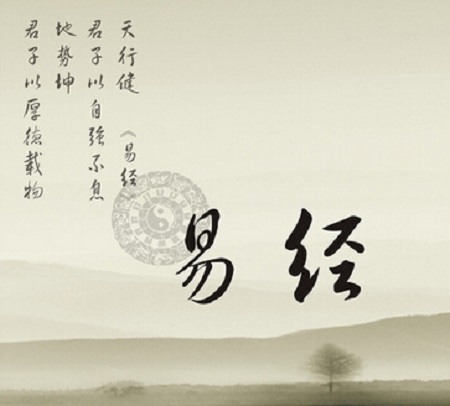 天行健 《易经》
君子以自强不息
地势坤
君子以厚德载物
易经